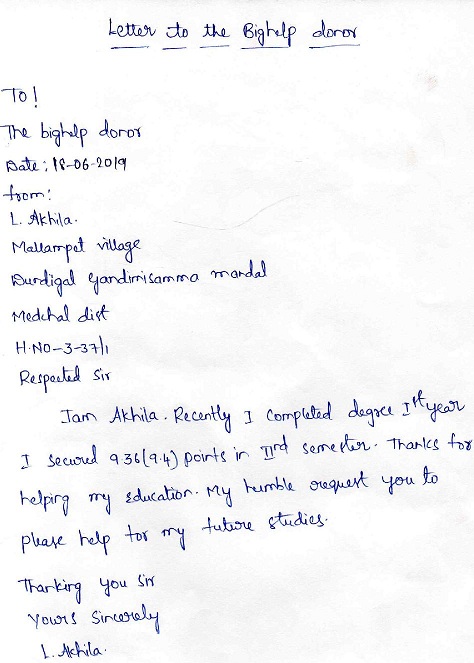 Letter to the Bighelp donor
To!
The bighelp donor
Date: 18-06-2019
from:
L. Akhila.
Mallampet village
Dundigal Gandimisamma mandal
Medchal dist
H.NO-3-37/1
Respected Sir
Iam Akhila. Recently I completed degree Ist year
I secured 9.36(9.4) points in IInd semester. Thanks for
helping my education. My humble request you to
please help for my future studies.
Thanking you Sir
Yours Sincerely
L. Akhila.